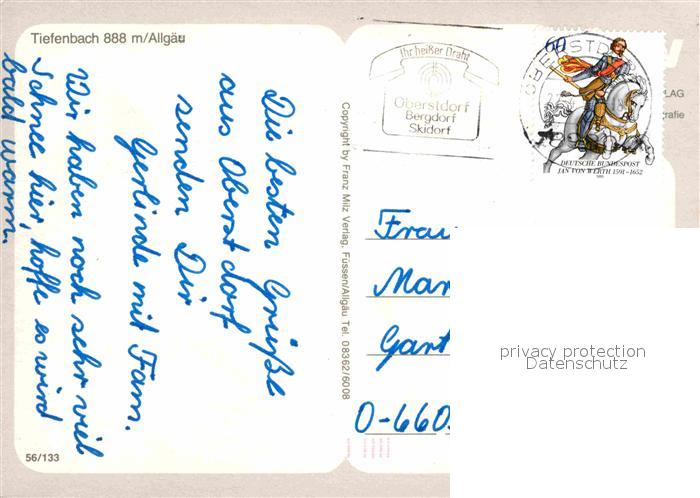 Tiefenbach 888 m/Allgäu
Die besten Grüße
aus Oberstdorf
senden Dir
Gerlinde mit Fam.
Wir haben noch sehr viel
Schnee hier, hoffe es wird
bald warm.
56/133
Copyright by Franz Milz Verlag, Füssen/Allgäu Tel. 08362/6008
Ihr heißer Draht
Oberstdorf
Bergdorf
Skidorf
OBERSTD
60
DEUTSCHE BUNDESPOST
JAN VON WERTH 1591-1652
LAG
rafie
Frau
Mar
Gart
O-660
privacy protection
Datenschutz